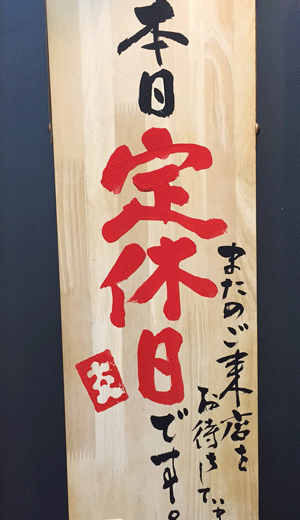 本日定休日です。
またのご来店を
お待ちして